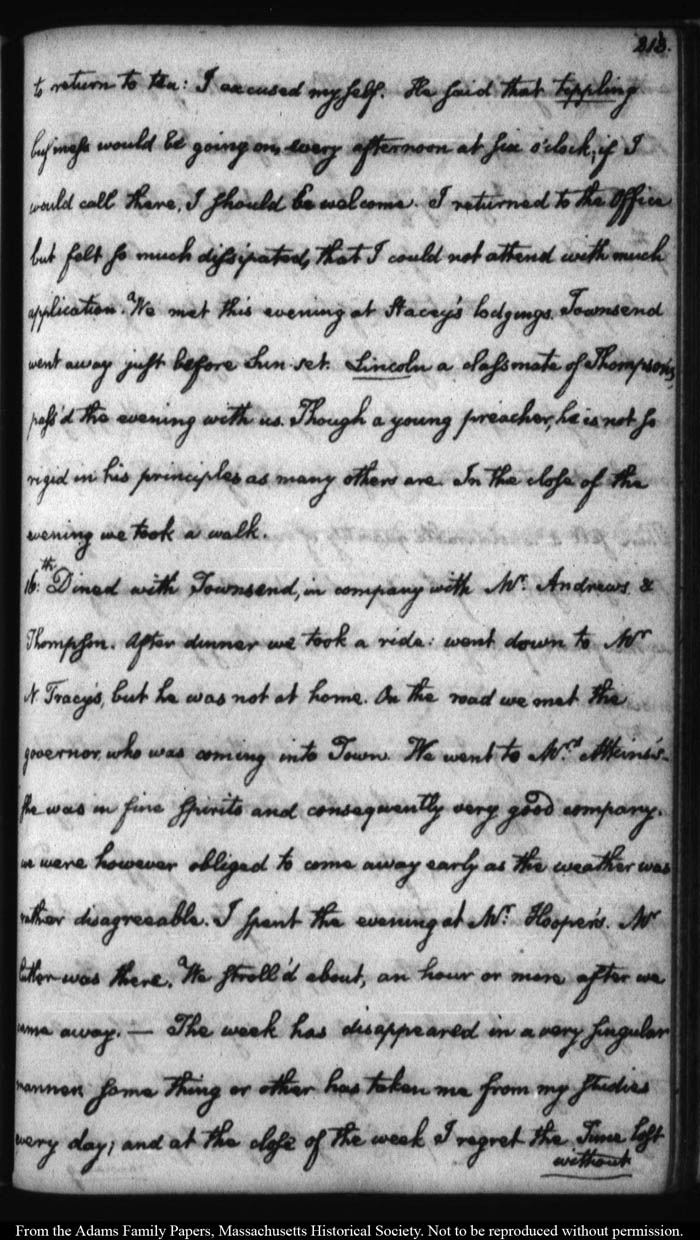 213.
to return to tea: I excused myself. He said that tippling
business would be going on, every afternoon at six o'clock; if I
would call there, I should be welcome. I returned to the Office
but felt so much dissipated, that I could not attend with much
application. We met this evening at Stacey's lodgings. Townsend
went away just before Sun set. Lincoln a classmate of Thompson's,
pass'd the evening with us. Though a young preacher, he is not so
rigid in his principles as many others are. In the close of the
evening we took a walk.
16:th Dined with Townsend, in company with Mr. Andrews. &
Thompson. After dinner we took a ride: went down to Mr
N. Tracy's, but he was not at home. On the road we met the
governor, who was coming into Town. We went to Mrs. Atkins's.
she was in fine spirits and consequently very good company.
we were however obliged to come away early as the weather was
rather disagreeable. I spent the evening at Mr. Hooper's. Mr
Cutler was there. We stroll'd about, an hour or more after we
came away. — The week has disappeared in a very singular
manner. some thing or other has taken me from my studies
every day; and at the close of the week I regret the Time lost
without
From the Adams Family Papers, Massachusetts Historical Society. Not to be reproduced without permission.